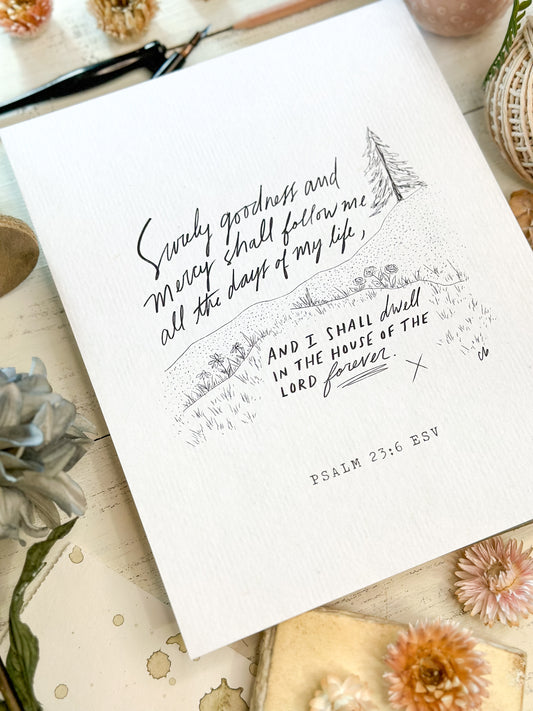 Surely goodness and
mercy shall follow me
all the days of my life,
AND I SHALL dwell
IN THE HOUSE OF THE
LORD forever.
PSALM 23:6 ESV